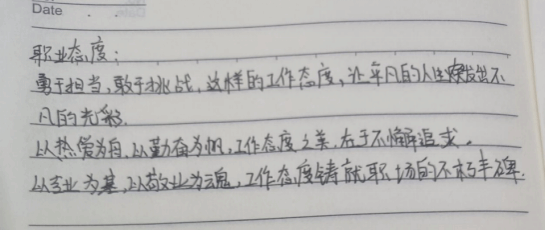 Date
职业态度：
勇于担当，敢于挑战，这样的工作态度，让平凡的人生焕发出不
凡的光彩.
以热爱为舟，以勤奋为帆，工作态度之美，在于不懈追求。
以专业为基，以敬业为魂，工作态度铸就职场的不朽丰碑.